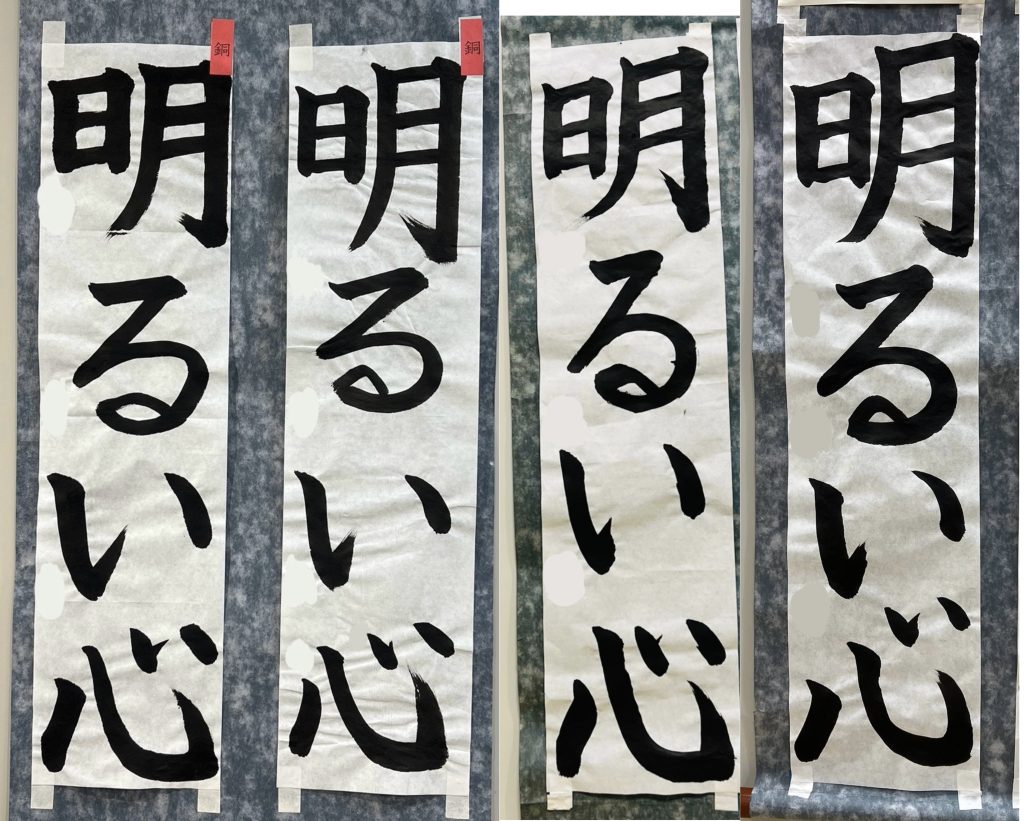 銅
明るい心
銅
明るい心
明るい心
明るい心